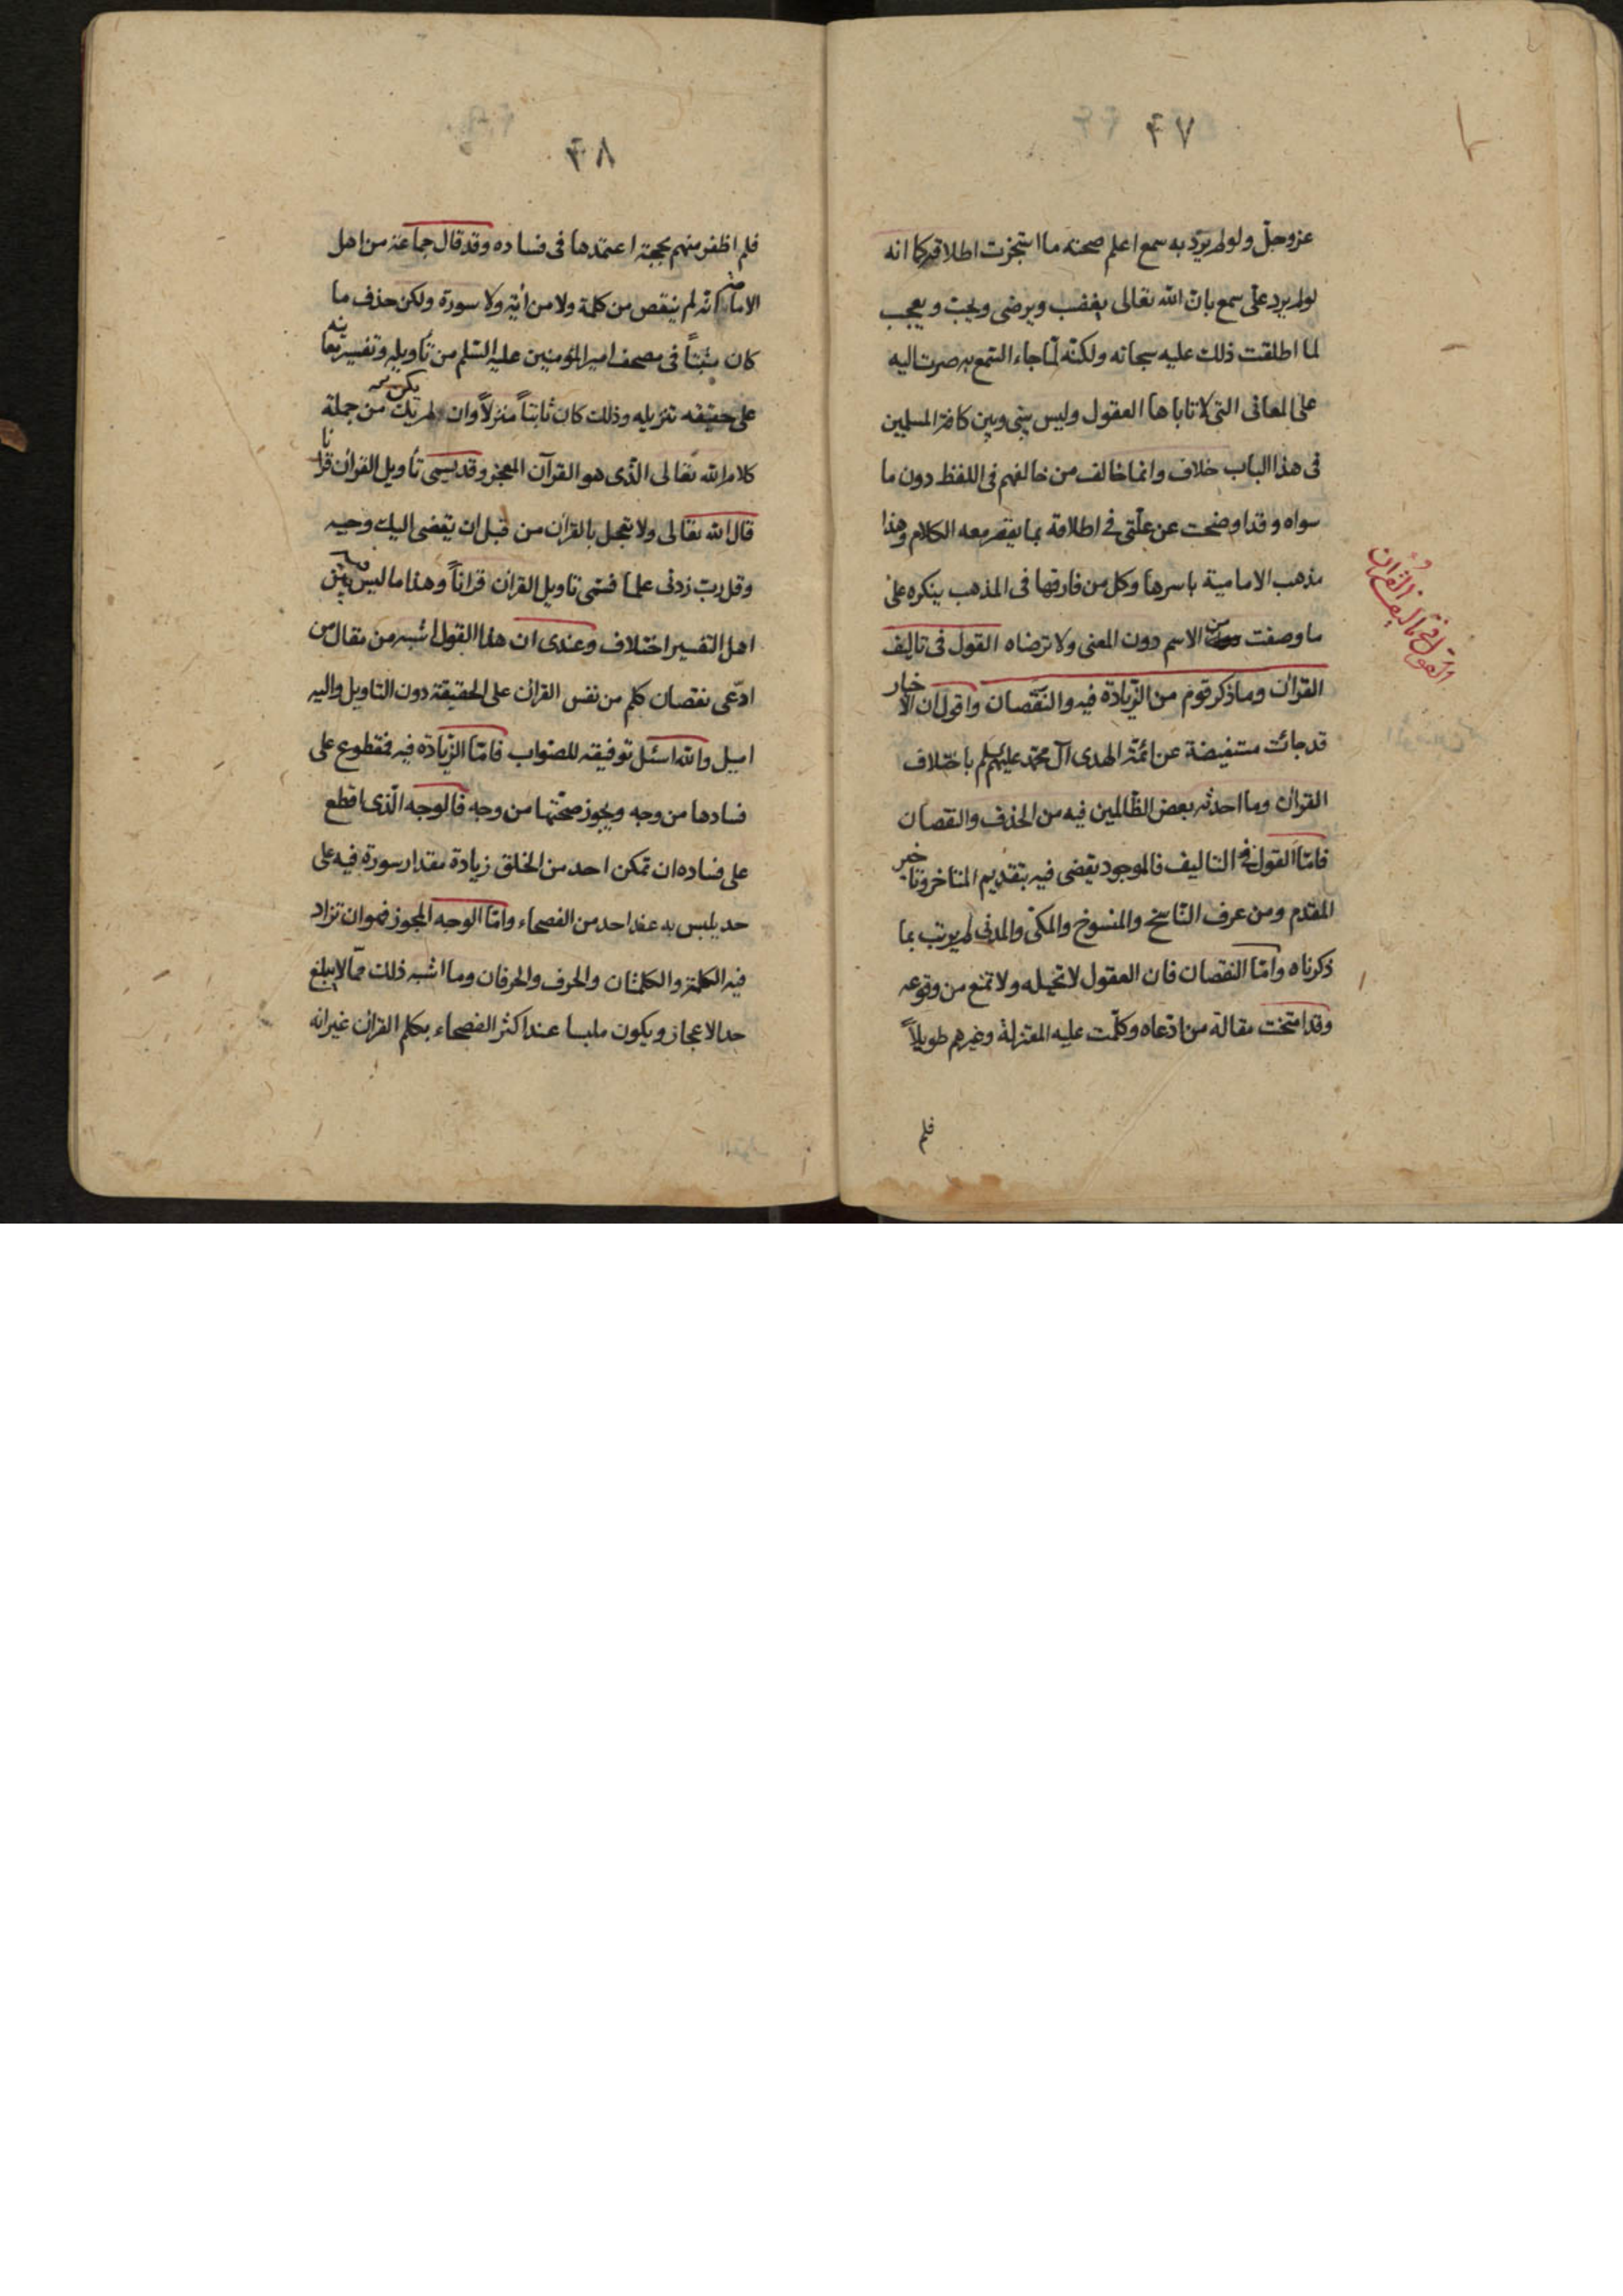 ۴۷
عز وجل ولو لم يرد به سمع اعلم صحته ما استجزت اطلاقه كما انه
لو لم يرد على سمع بان الله تعالى يغضب ويرضى ويحب ويعجب
لما اطلقت ذلك عليه سبحانه ولكنه لما جاء السمع به صرت اليه
على المعانى التى لا تاباها العقول وليس بينى وبين كافة المسلمين
فى هذا الباب خلاف وانما خالف من خالفهم فى اللفظ دون ما
سواه وقد اوضحت عن علتى فى اطلاقه بما يقصر معه الكلام وهذا
مذهب الامامية باسرها وكل من فارقها فى المذهب ينكره على
ما وصفت من الاسم دون المعنى ولا ترضاه القول فى تاليف
القران وما ذكر قوم من الزيادة فيه والنقصان واقول ان الاخبار
قد جائت مستفيضة عن ائمة الهدى آل محمد عليهم باختلاف
القران وما احدثه بعض الظالمين فيه من الحذف والنقصان
فاما القول فى التاليف فالموجود يقضى فيه بتقديم المتاخر وتاخير
المقدم ومن عرف الناسخ والمنسوخ والمكى والمدنى لم يرتب بما
ذكرناه واما النقصان فان العقول لا تحيله ولا تمنع من وقوعه
وقد امتحنت مقالة من ادعاه وكلمت عليه المعتزلة وغيرهم طويلاً
فلم
القول فى تاليف القران
۴۸
فلم اظفر منهم بحجة اعتمدها فى فساده وقد قال جماعة من اهل
الامامة انه لم ينقص من كلمة ولا من أية ولا سورة ولكن حذف ما
كان مثبتاً فى مصحف امير المؤمنين عليه السلم من تأويله وتفسير معانيه
على حقيقة تنزيله وذلك كان ثابتاً منزلاً وان لم يك يكن من جملة
كلام الله تعالى الذى هو القرآن المعجز وقد يسمى تأويل القران قرانا
قال الله تعالى ولا تعجل بالقران من قبل ان يقضى اليك وحيه
وقل رب زدنى علما فسمى تاويل القران قراناً وهذا ما ليس فيه بين
اهل التفسير اختلاف وعندى ان هذا القول اشبه من مقال من
ادعى نقصان كلم من نفس القران على الحقيقة دون التاويل واليه
اميل والله اسئل توفيقه للصواب فاما الزيادة فيه فمقطوع على
فسادها من وجه ويجوز صحتها من وجه فالوجه الذى اقطع
على فساده ان تمكن احد من الخلق زيادة مقدار سورة فيه على
حد يلبس به عند احد من الفصحاء واما الوجه المجوز فهو ان تزاد
فيه الكلمة والكلمتان والحرف والحرفان وما اشبه ذلك مما لا يبلغ
حد الاعجاز ويكون ملبسا عند اكثر الفصحاء بكلم القران غير انه